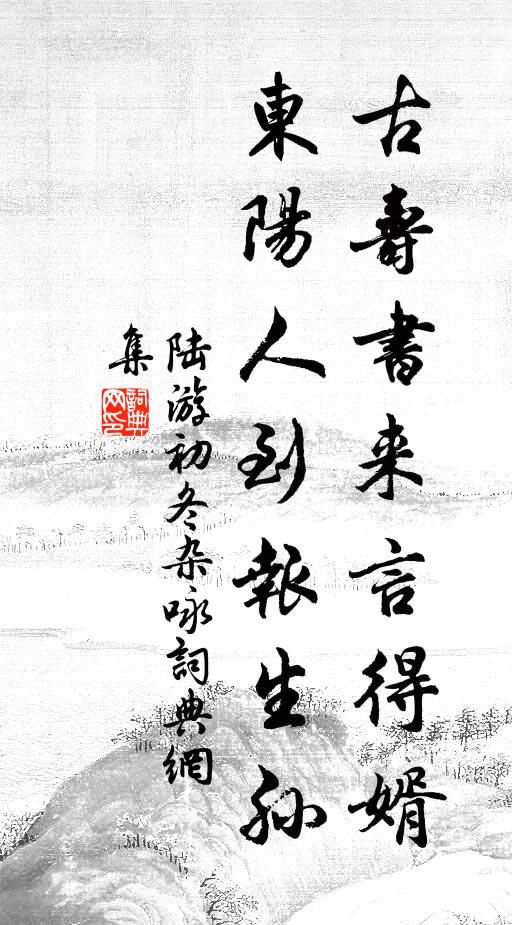 古壽書来言得婿
東陽人到報生孫
陸游初冬杂咏詞典網
集
詞典网印